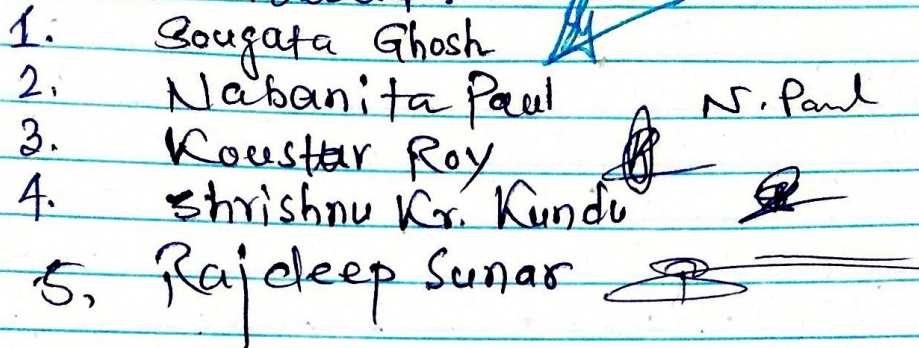 1. Sougata Ghosh
2. Nabanita Paul N. Paul
3. Koustar Roy
4. Shrishnu Kr. Kundu
5, Rajdeep Sunar